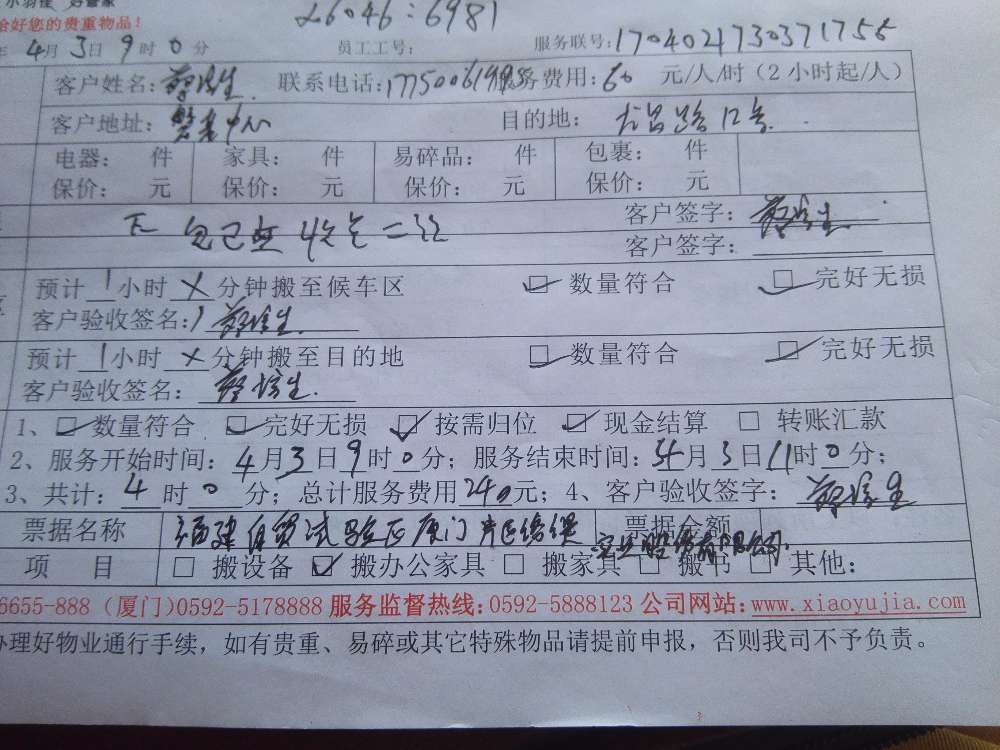 26046:6981
给好您的贵重物品！
年4月3日9时0分 员工工号： 服务联号：
客户姓名： 联系电话： 服务费用：60 元/人/时（2小时起/人）
客户地址： 中心 目的地： 路12号
电器： 件 家具： 件 易碎品： 件 包裹： 件
保价： 元 保价： 元 保价： 元 保价： 元
客户签字：
客户签字：
预计1小时 分钟搬至候车区 数量符合 完好无损
客户验收签名：
预计1小时 分钟搬至目的地 数量符合 完好无损
客户验收签名：
1、数量符合 完好无损 按需归位 现金结算 转账汇款
2、服务开始时间：4月3日9时0分；服务结束时间：4月3日11时0分；
3、共计：4时0分；总计服务费用240元；4、客户验收签字：
票据名称 福建自贸试验区厦门片区 票据金额
实业股份有限公司
项 目 搬设备 搬办公家具 搬家具 搬书 其他：
6655-888（厦门)0592-5178888 服务监督热线：0592-5888123 公司网站：www.xiaoyujia.com
办理好物业通行手续，如有贵重、易碎或其它特殊物品请提前申报，否则我司不予负责。